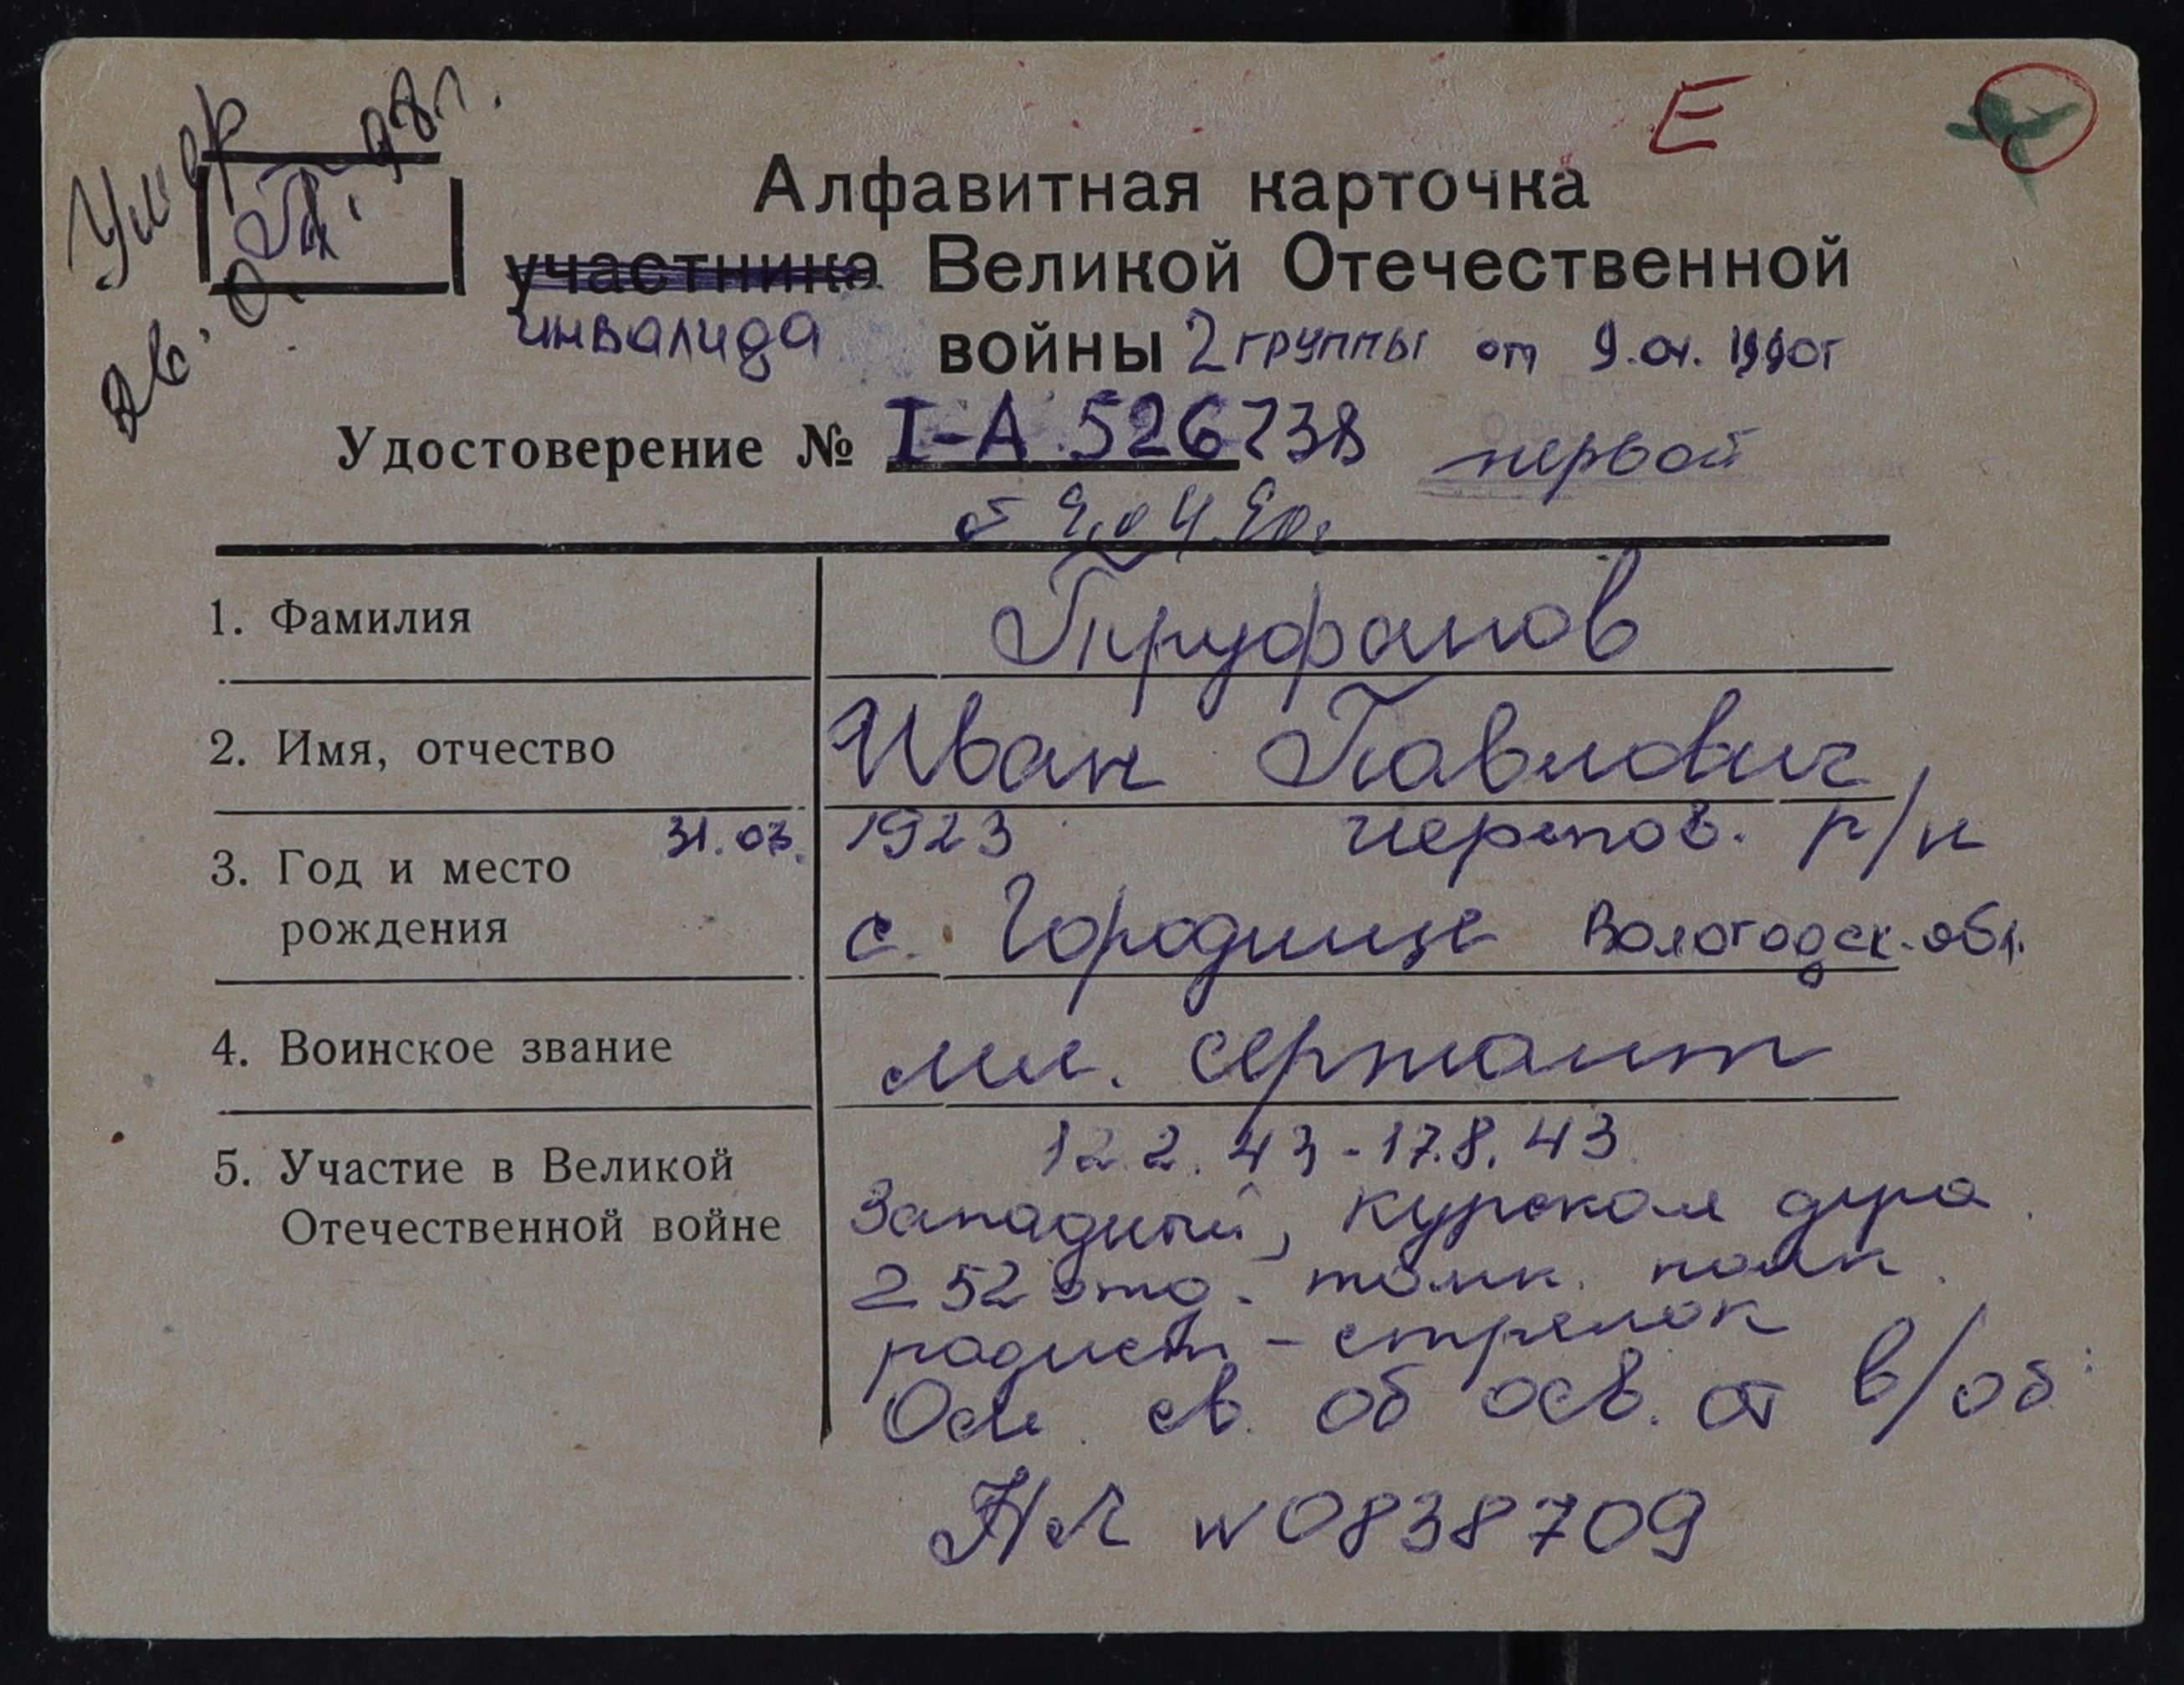 Е
Умер
26.0 .98г.
Т
Алфавитная карточка
участника Великой Отечественной
инвалида войны 2 группы от 9.04.1990г
Удостоверение № I-А 526738 первой
от 9.04.90г
1. Фамилия Труфанов
2. Имя, отчество Иван Павлович
3. Год и место 31.03. 1923 черепов. р/н
рождения с. Городище Вологодск. обл.
4. Воинское звание мл. сержант
5. Участие в Великой 12.2.43-17.8.43
Отечественной войне Западный, Курская дуга.
252 отд. танк. полк.
радист-стрелок
Осн. св. об осв. от в/об:
НЛ № 0838709